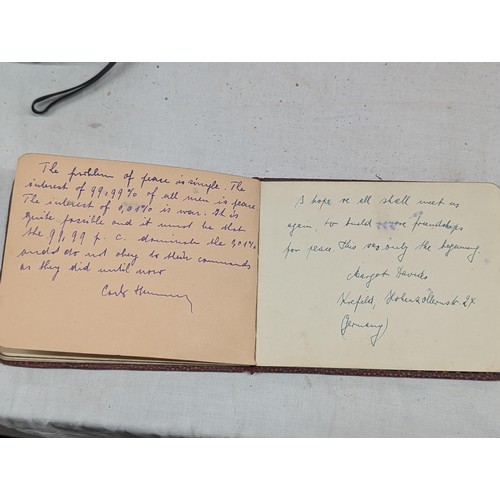 The problem of peace is simple. The
interest of 99,99% of all men is peace
The interest of 0,01% is war. It is
quite possible and it must be that
the 99,99 p.c. dominate the 0,01%
and do not obey to their commands
as they did until now
Carl
I hope we all shall meet us
again, to build more friendships
for peace. This was only the beginning
Margot
Krefeld, 24
(Germany)